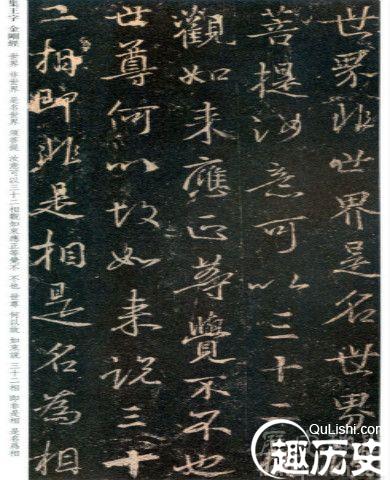 世界非世界是名世界
菩提汝意可以三十二
觀如来應正等覺不不也
世尊何以故如来説三十
二相即非是相是名為相
集王字金剛經 世界 非世界 是名世界 須菩提 汝意可以三十二相觀如來應正等覺不 不也 世尊 何以故 如來說 三十二相 即非是相 是名爲相
QuLishi.com
趣历史